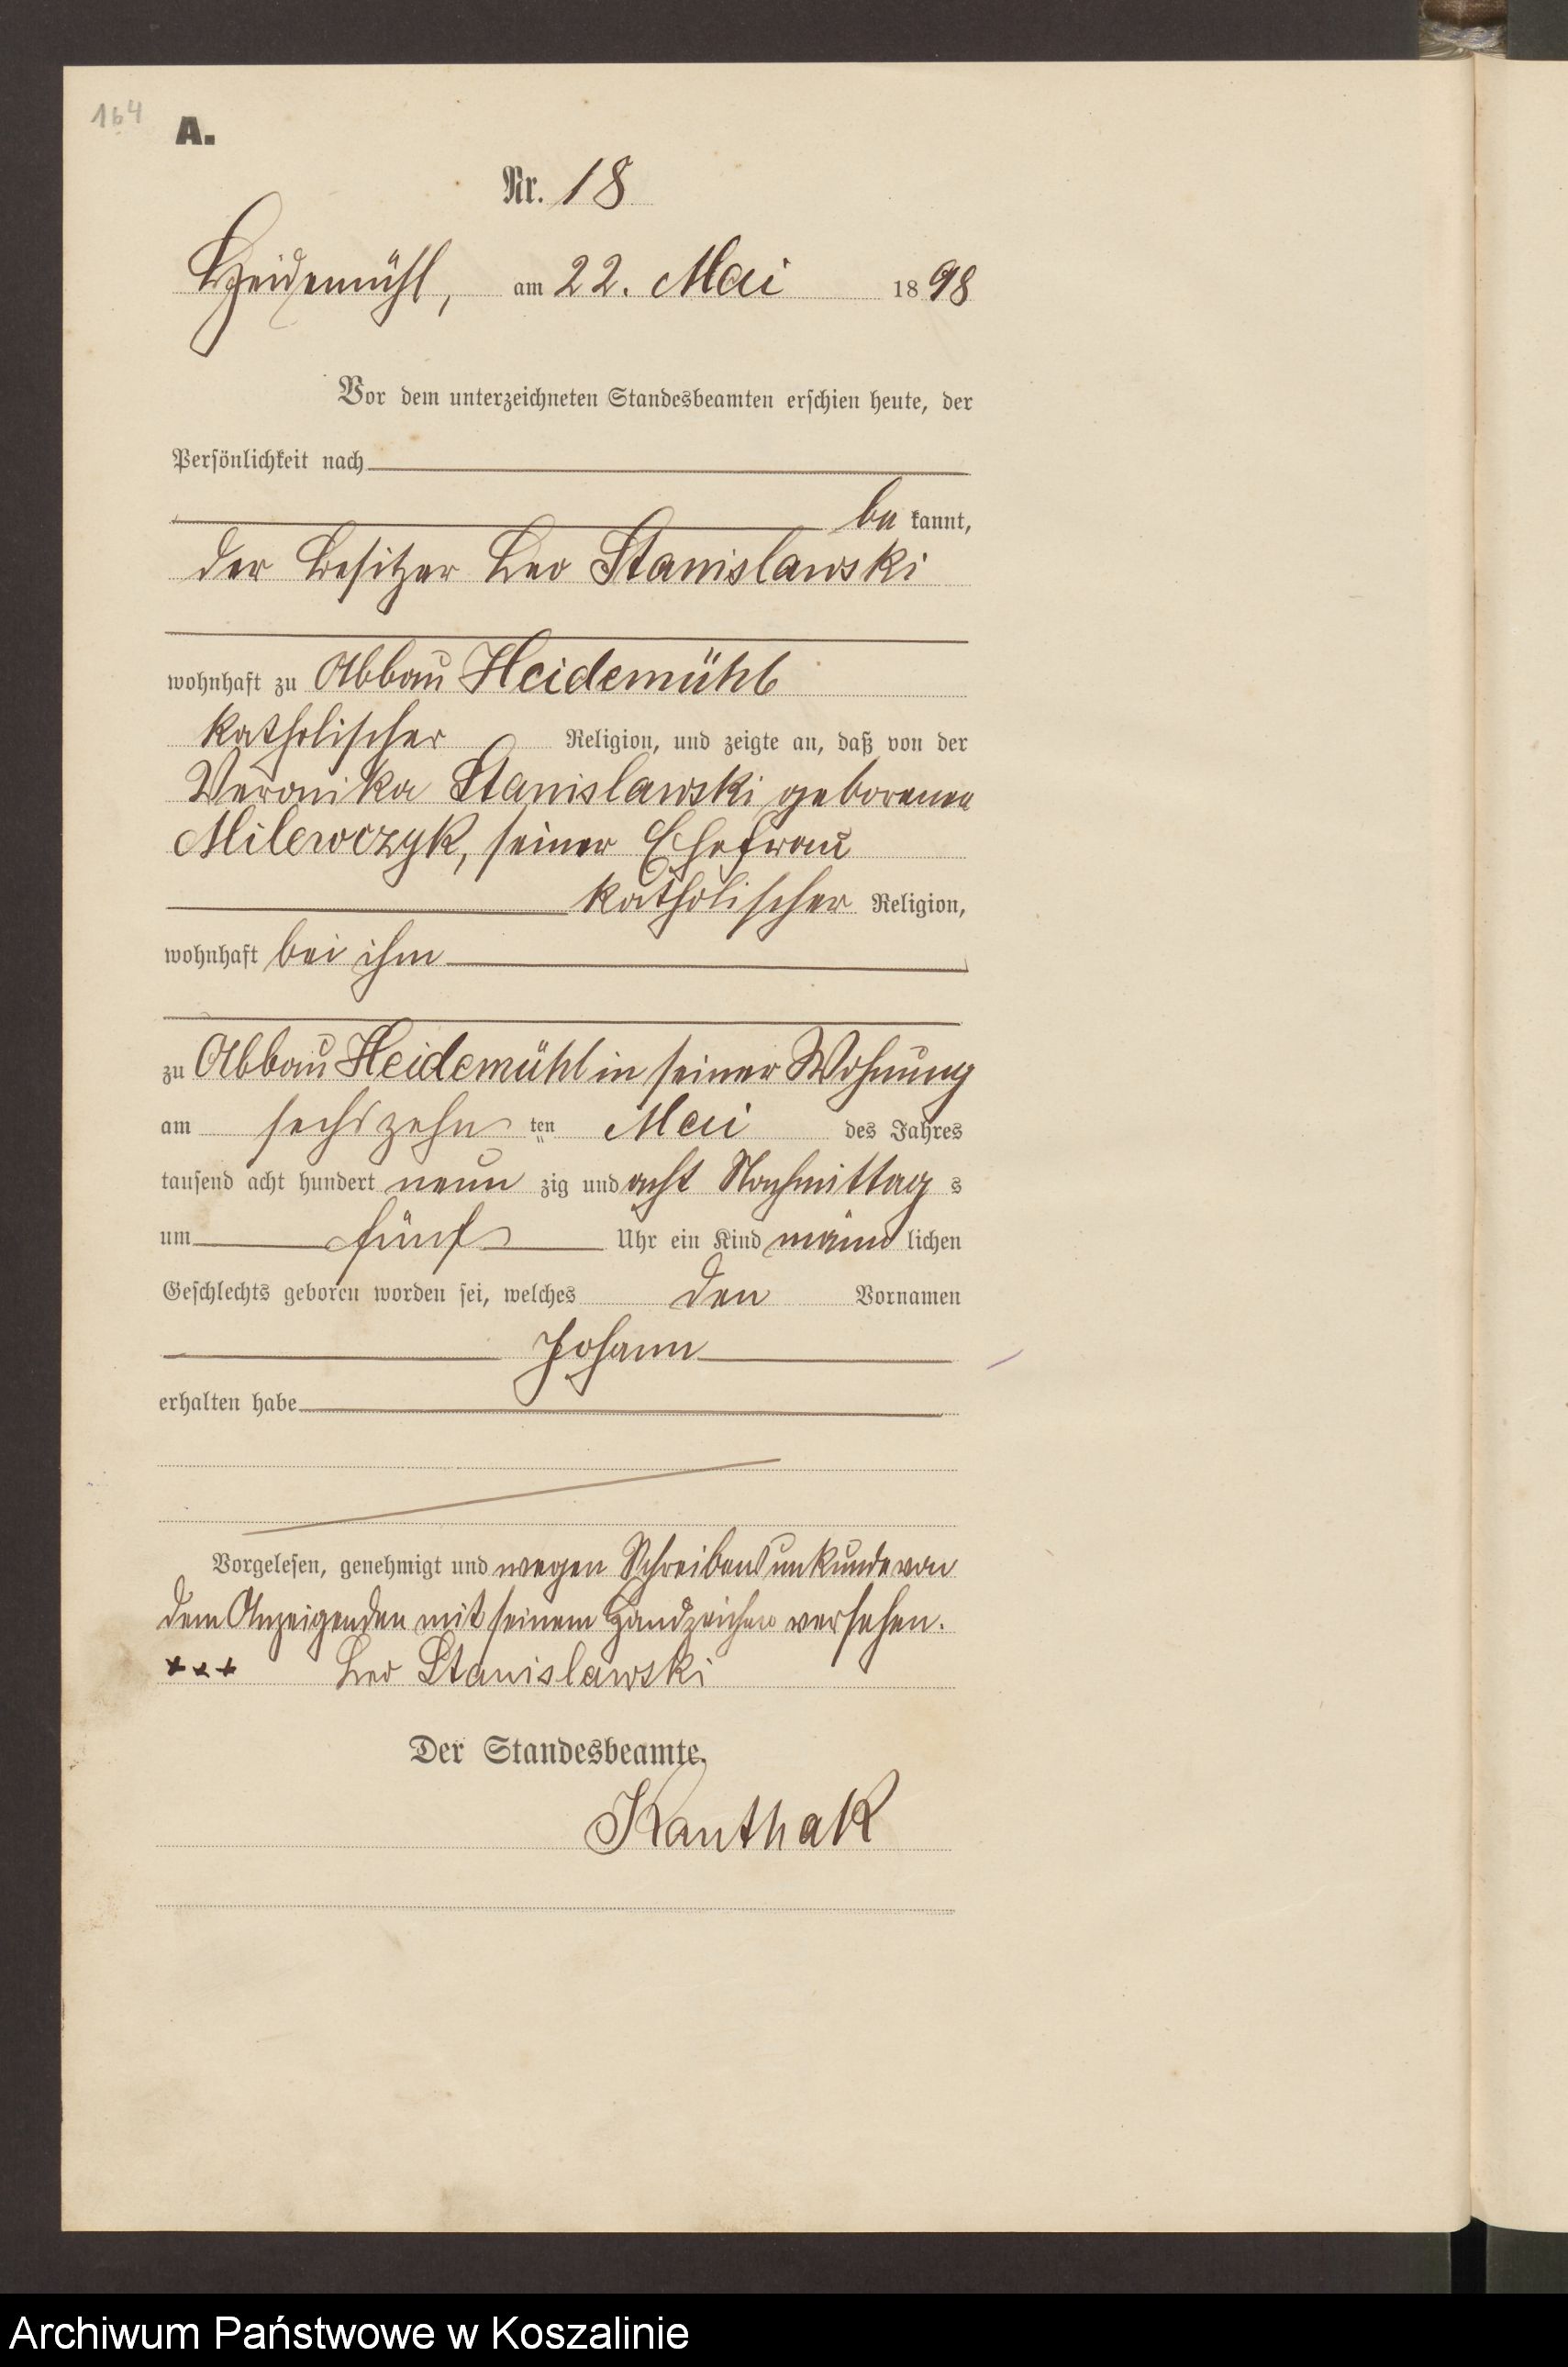 164
A.
Nr. 18
Heidemühl, am 22. Mai 1898
Vor dem unterzeichneten Standesbeamten erschien heute, der
Persönlichkeit nach
be kannt,
der Besitzer Leo Stanislawski
wohnhaft zu Abbau Heidemühl
katholischer Religion, und zeigte an, daß von der
Veronika Stanislawski geborenen
Milewczyk, seiner Ehefrau
katholischer Religion,
wohnhaft bei ihm
zu Abbau Heidemühl in seiner Wohnung
am sechszehn ten Mai des Jahres
tausend acht hundert neun zig und acht Nachmittag s
um fünf Uhr ein Kind männ lichen
Geschlechts geboren worden sei, welches den Vornamen
Johann
erhalten habe
Vorgelesen, genehmigt und wegen Schreibensunkunde von
dem Anzeigenden mit seinem Handzeichen versehen.
+++ Leo Stanislawski
Der Standesbeamte.
Kanthak
Archiwum Państwowe w Koszalinie